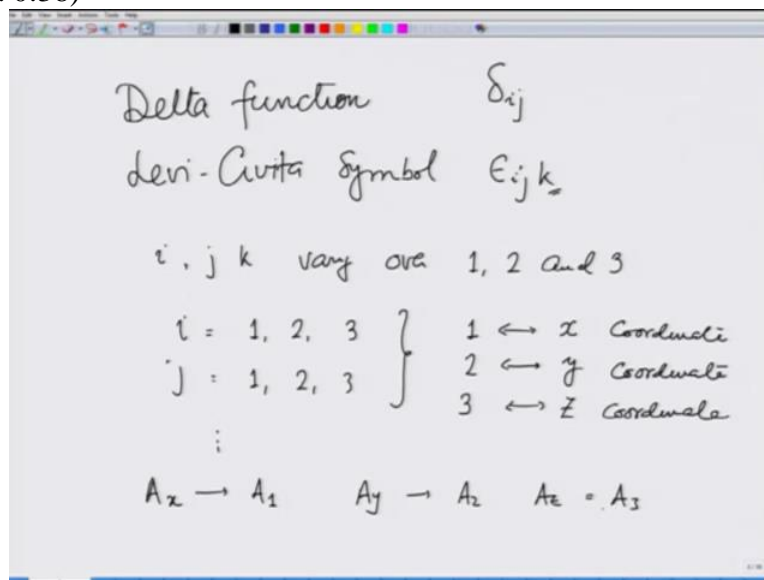 0:58)
Delta function δij
Levi-Civita Symbol ϵijk
i, j k vary over 1, 2 and 3
i = 1, 2, 3 } 1 ↔ x Coordinate
j = 1, 2, 3 2 ↔ y Coordinate
3 ↔ z Coordinate
⋮
Ax → A1 Ay → A2 Az = A3